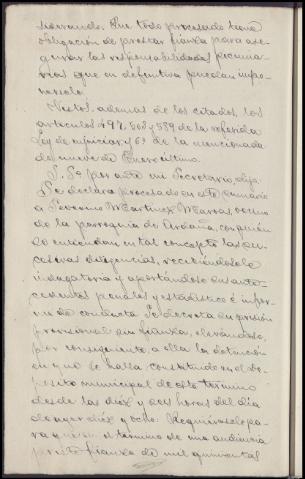 Que todo procesado tiene
obligacion de prestar fianza para ase-
gurar las responsabilidades pecunia-
rias que en definitiva puedan impo-
nersele.
Vistos, ademas de los citados, los
articulos 492, 503 y 589 de la referida
Ley de enjuiciar y 6º de la mencionada
de nueve de Enero ultimo.
S. Sª por ante mi Secretario, dijo:
Se declara procesado en este sumario
a Severino Martinez Marras, vecino
de la parroquia de , con quien
se entiendan en tal concepto las su-
cesivas diligencias, recibiendosele
indagatoria y aportandose sus ante-
cedentes penales y estadistico é infor-
me de conducta. Se decreta su prision
provisional sin fianza, elevandose,
por consiguiente, a ella la detencion
en que se halla constituido en el De-
posito municipal de este termino
desde las diez y seis horas del dia
de ayer diez y ocho. Requierasele pa-
ra que en el termino de una audiencia
preste fianza de mil quinientas